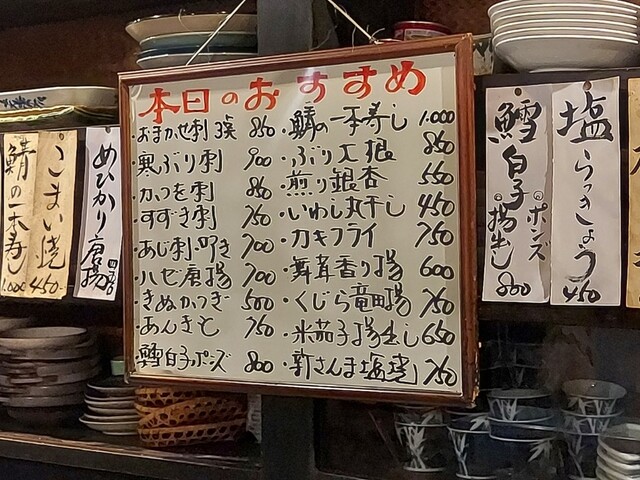 本日のおすすめ
・おまかせ刺 3点 850
・寒ぶり刺 900
・かつを刺 850
・すずき刺 750
・あじ刺・叩き 700
・ハゼ唐揚 700
・きぬかつぎ 500
・あんきも 750
・鱈白子ポンズ 800
・鯖の一本寿し 1.000
・ぶり大根 850
・煎り銀杏 550
・いわし丸干し 450
・カキフライ 750
・舞茸香り揚 600
・くじら竜田揚 750
・米茄子揚出し 650
・新さんま塩焼 750
鯖の一本寿し 1.000
こまい焼 450
めひかり唐揚
鱈白子 ポンズ 揚出し 800
塩らっきょう 450